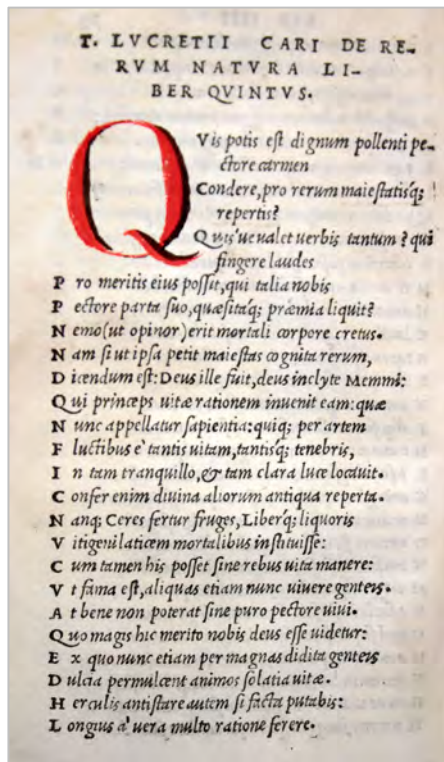 T. LVCRETII CARI DE RE-
RVM NATVRA LI-
BER QVINTVS.
QVis potis est dignum pollenti pe-
ctore carmen
Condere, pro rerum maiestatisq;
repertis?
Quis'ue ualet uerbis tantum? qui
fingere laudes
Pro meritis eius possit, qui talia nobis
Pectore parta suo, quæsitaq; præmia liquit?
Nemo (ut opinor) erit mortali corpore cretus.
Nam si ut ipsa petit maiestas cognita rerum,
Dicendum est: Deus ille fuit, deus inclyte Memmi:
Qui princeps uitæ rationem inuenit eam: quæ
Nunc appellatur sapientia: quiq; per artem
Fluctibus è tantis uitam, tantisq; tenebris,
In tam tranquillo, & tam clara luce locauit.
Confer enim diuina aliorum antiqua reperta.
Nanq; Ceres fertur fruges, Liberq; liquoris
Vitigeni laticem mortalibus instituisse:
Cum tamen his posset sine rebus uita manere:
Vt fama est, aliquas etiam nunc uiuere genteis.
At bene non poterat sine puro pectore uiui.
Quo magis hic merito nobis deus esse uidetur:
Ex quo nunc etiam per magnas didita genteis
Dulcia permulcent animos solatia uitæ.
Herculis antistare autem si facta putabis:
Longius à uera multo ratione ferere.